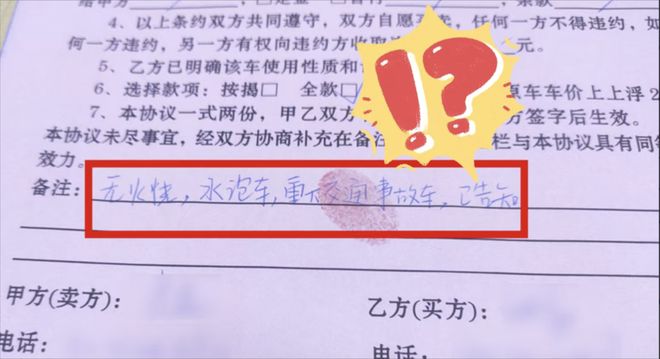 给甲方），
4、以上条约双方共同遵守，双方自愿 任何一方不得违约，如
何一方违约，另一方有权向违约方收取 元。
5、乙方已明确该车使用性质和
6、选择款项：按揭□ 全款□ 原车车价上上浮2
7、本协议一式两份，甲乙双方 方签字后生效。
本协议未尽事宜，经双方协商补充在备注 栏与本协议具有同等
效力。
备注：无火烧，水泡车，重大交通事故车，已告知
!?
甲方(卖方)：
乙方(买方)：
电话：
电话：